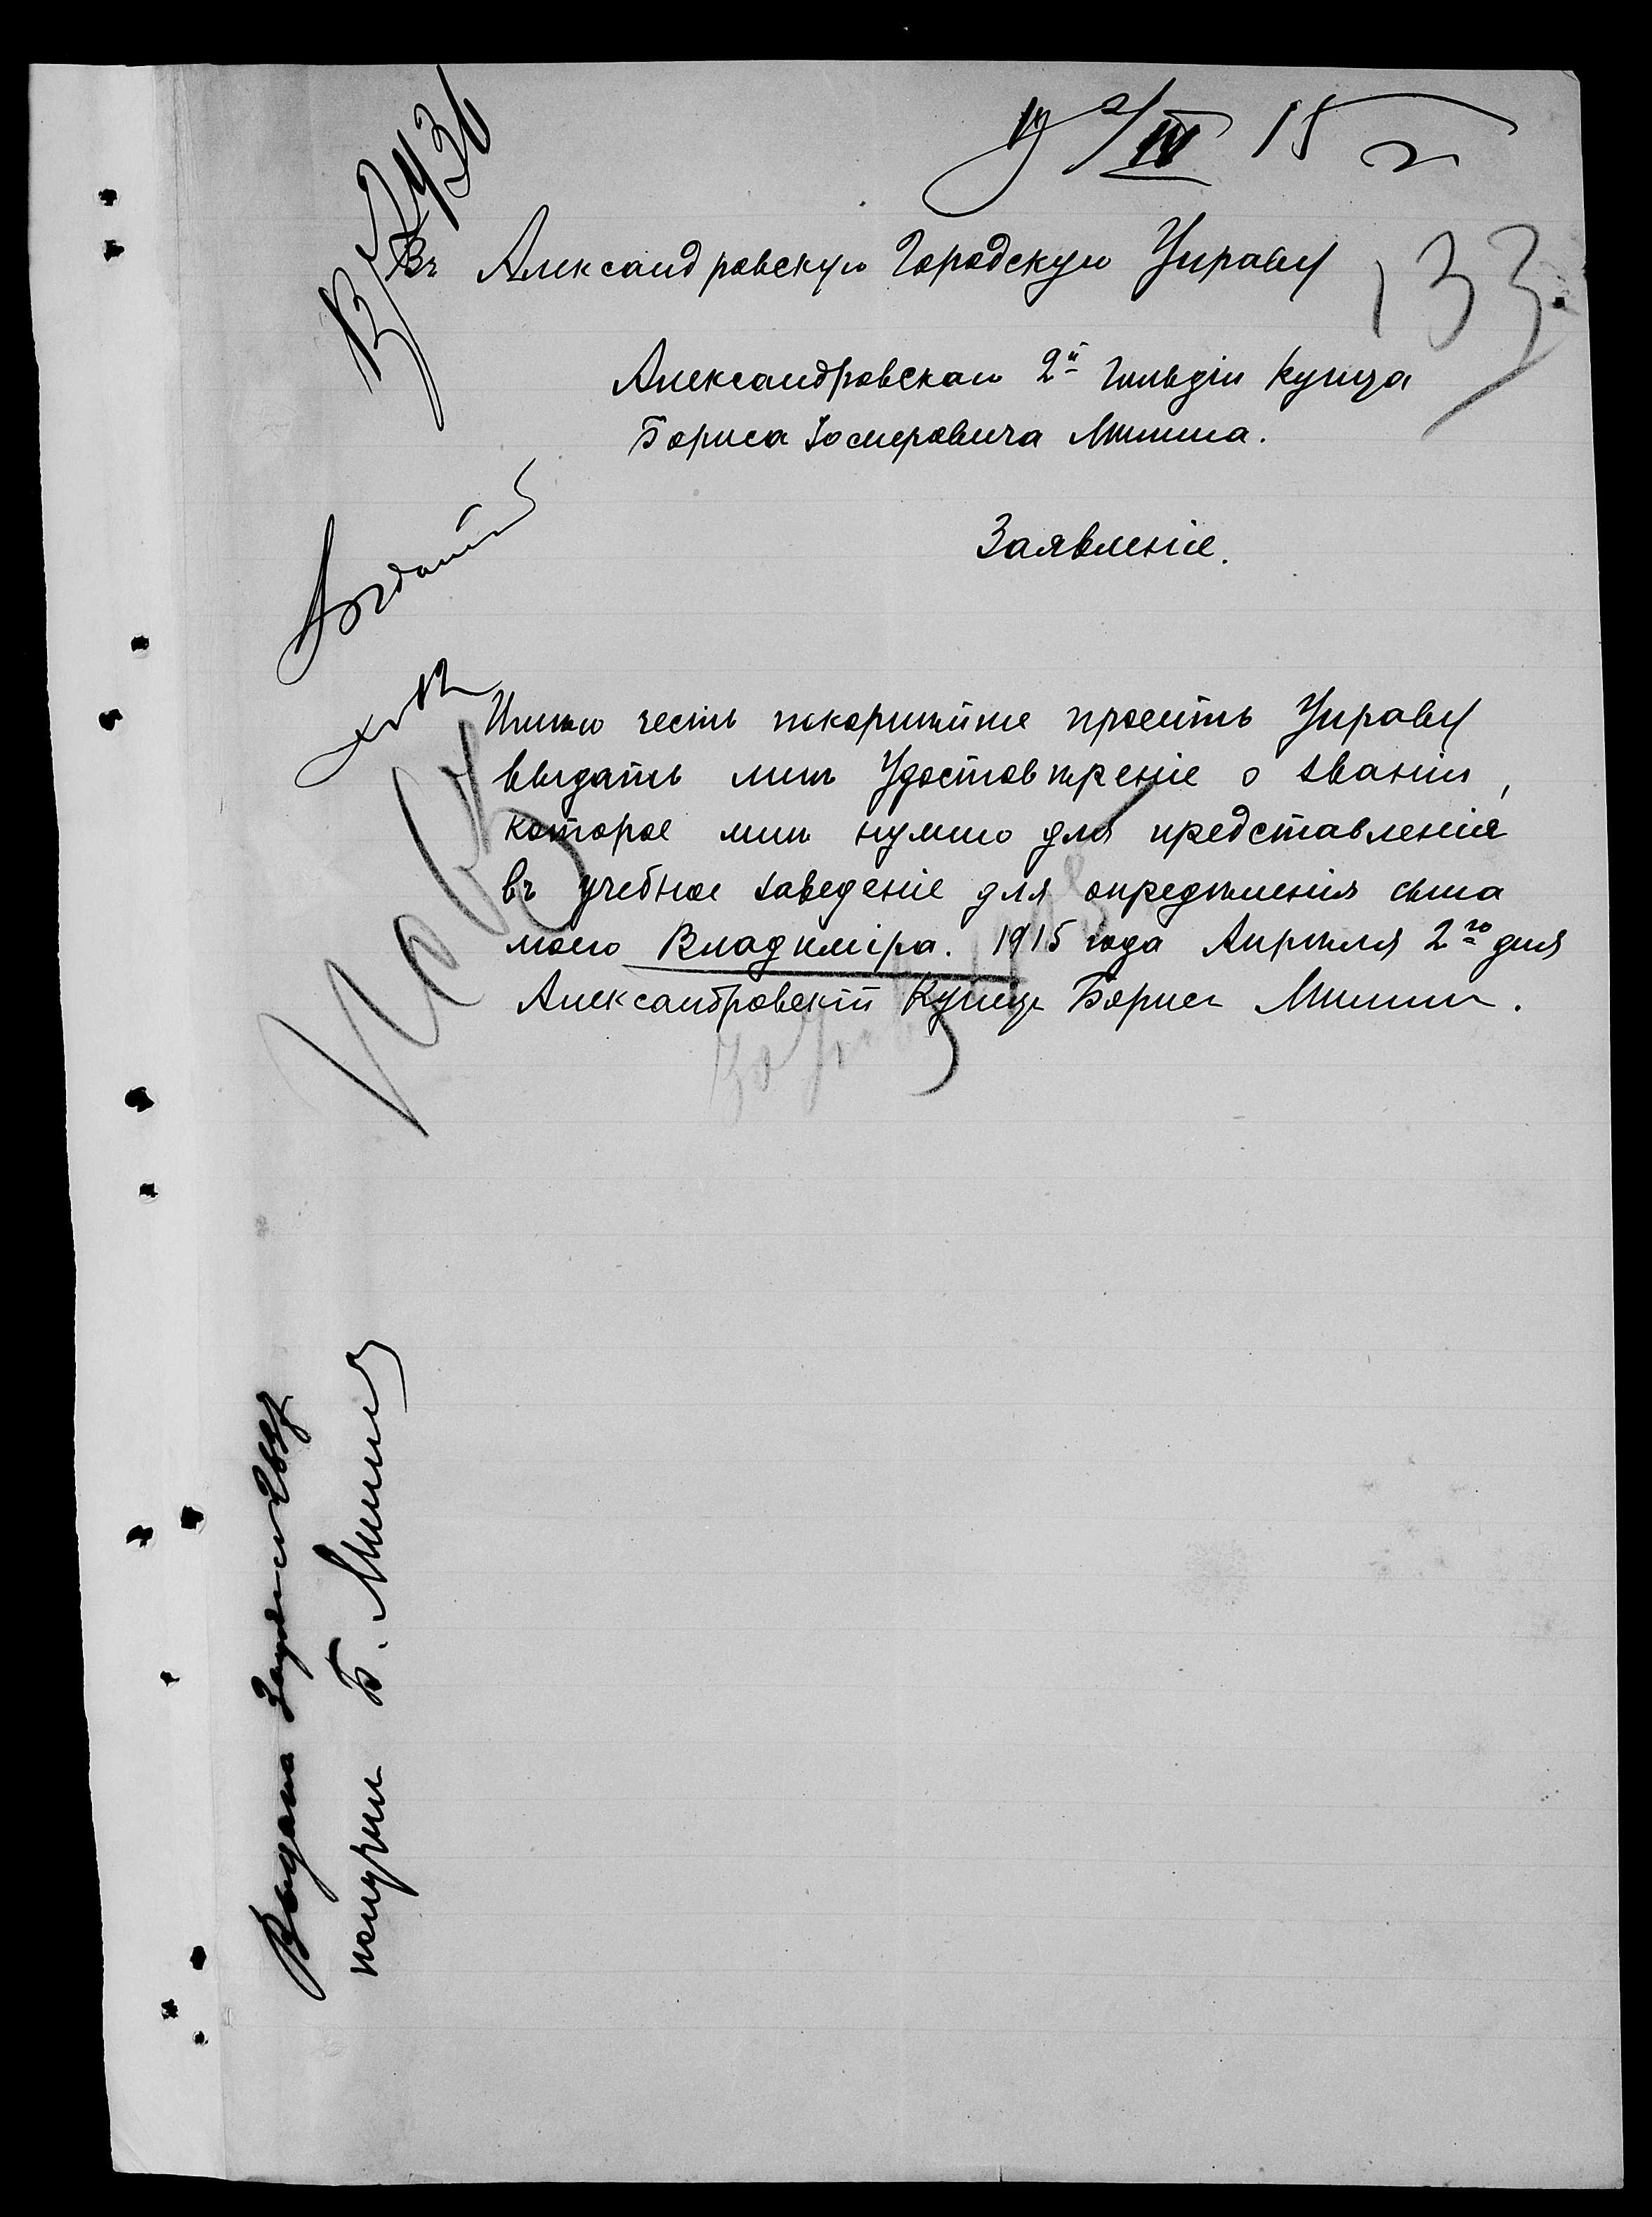 2/IV 15 г
133
Въ Александровскую Городскую Управу
Александровскаго 2й Гильдіи Купца
Бориса Іосифовича Мишина.
Заявленіе.
Имѣю честь покорнѣйше просить Управу
выдать мнѣ Удостовѣреніе о званіи,
которое мнѣ нужно для представленія
въ учебное заведеніе для опредѣленія сына
моего Владиміра. 1915 года Апрѣля 2го дня
Александровскій Купецъ Борисъ Мишинъ.
получил Б. Мишинъ